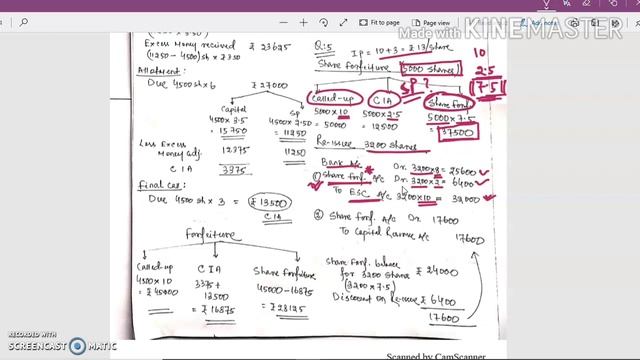 Fit to page
Page view
MADE WITH
KINEMASTER
Excess Money received ₹ 23625
(11250 - 4500) sh x ₹ 3.50
Allotment:
Due 4500 sh x 6 ₹ 27000
Capital
4500 x 3.5
= 15750
SP
4500 x 2.50
= 11250
Less Excess
Money adj. 12375 11250
CIA 3375
Final Call
Due 4500 sh x 3 = ₹ 13500
CIA
Forfeiture
Called-up
4500 x 10
= ₹ 45000
CIA
3375 +
13500
= ₹ 16875
Share Forfeiture
45000 - 16875
= ₹ 28125
Q:5
IP = 10 + 3 = ₹ 13/share
Share Forfeiture 5000 shares
SP ?
10
2.5
7.5
Called-up
5000 x 10
= 50000
CIA
5000 x 2.5
= 12500
Share Forf.
5000 x 7.5
= 37500
Re-issue 3200 shares
Bank A/c Dr. 3200 x 8 = 25600
① Share forf. A/c Dr. 3200 x 2 = 6400
To ESC A/c 3200 x 10 = 32000
② Share Forf. A/c Dr 17600
To Capital Reserve A/c 17600
Share Forf. balance
for 3200 shares ₹ 24000
(3200 x 7.5)
Discount on Re-issue ₹ 6400
17600
RECORDED WITH
SCREENCAST MATIC
Scanned by CamScanner